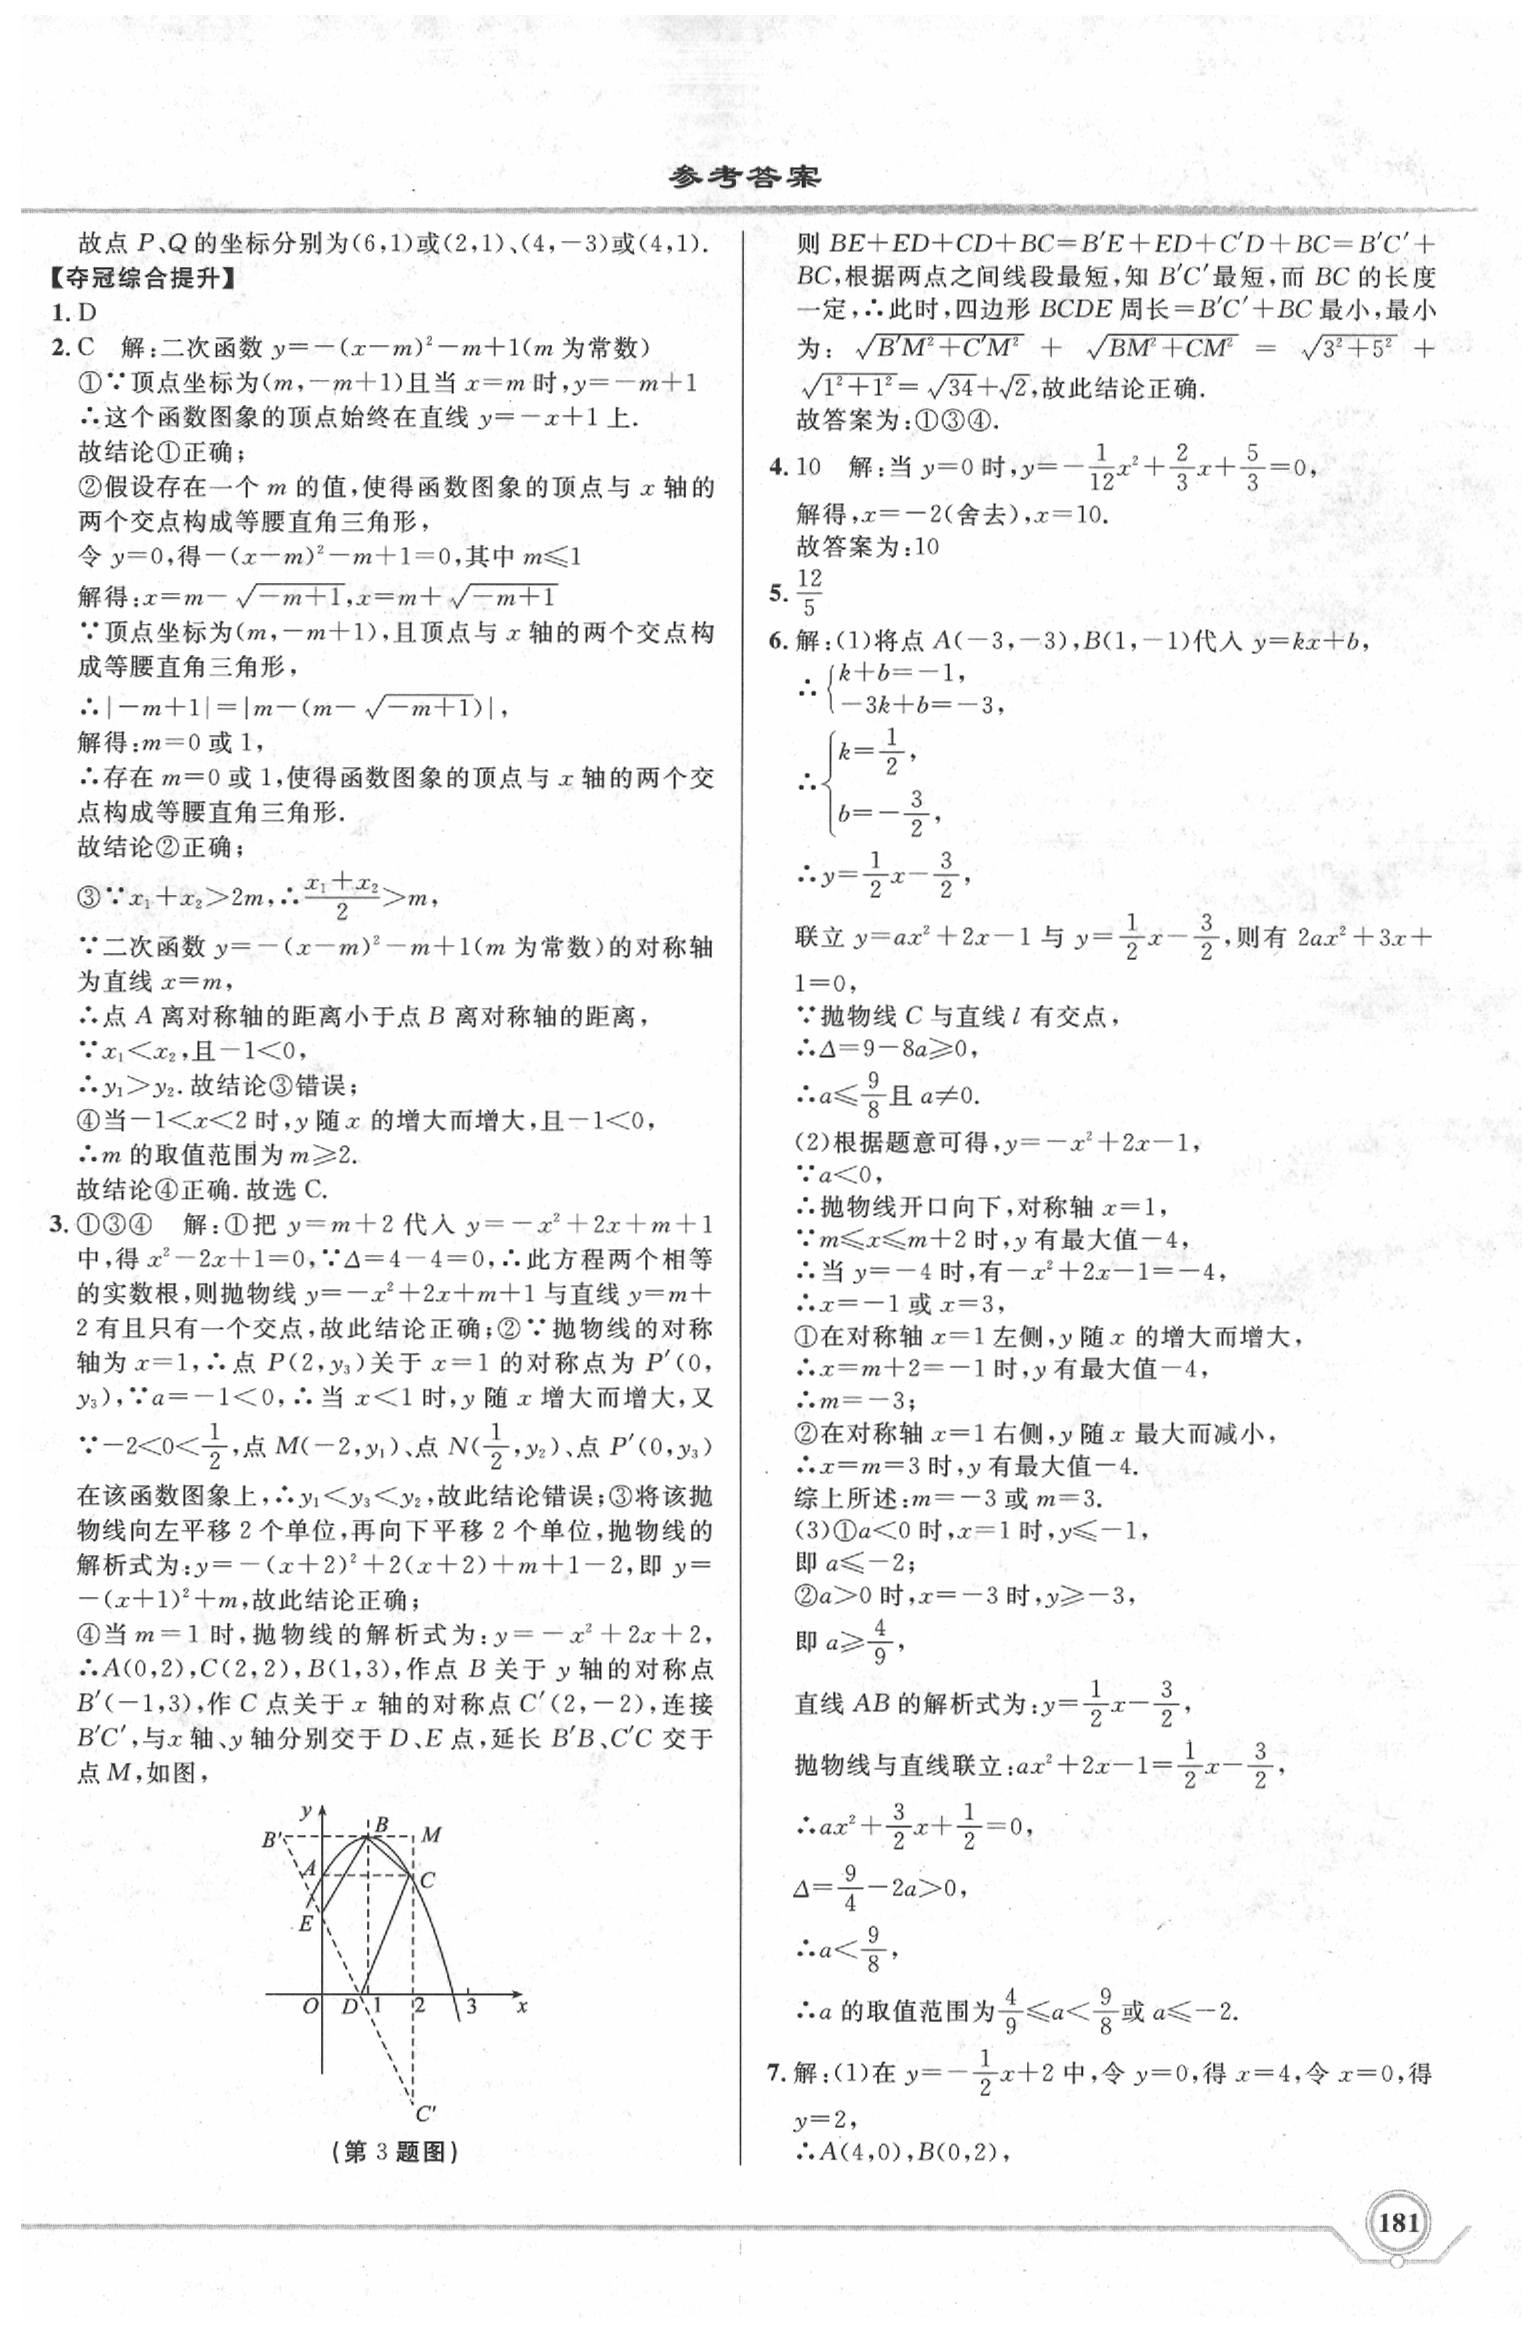 参考答案
故点 P、Q 的坐标分别为(6,1)或(2,1)、(4,-3)或(4,1).
【夺冠综合提升】
1. D
2. C 解:二次函数 y=-(x-m)²-m+1(m 为常数)
①∵顶点坐标为(m,-m+1)且当 x=m 时,y=-m+1
∴这个函数图象的顶点始终在直线 y=-x+1 上.
故结论①正确;
②假设存在一个 m 的值,使得函数图象的顶点与 x 轴的
两个交点构成等腰直角三角形,
令 y=0,得-(x-m)²-m+1=0,其中 m≤1
解得:x=m-√(-m+1),x=m+√(-m+1)
∵顶点坐标为(m,-m+1),且顶点与 x 轴的两个交点构
成等腰直角三角形,
∴|-m+1|=|m-(m-√(-m+1))|,
解得:m=0 或 1,
∴存在 m=0 或 1,使得函数图象的顶点与 x 轴的两个交
点构成等腰直角三角形.
故结论②正确;
③∵x₁+x₂>2m,∴(x₁+x₂)/2>m,
∵二次函数 y=-(x-m)²-m+1(m 为常数)的对称轴
为直线 x=m,
∴点 A 离对称轴的距离小于点 B 离对称轴的距离,
∵x₁<x₂,且-1<0,
∴y₁>y₂.故结论③错误;
④当-1<x<2 时,y 随 x 的增大而增大,且-1<0,
∴m 的取值范围为 m≥2.
故结论④正确.故选 C.
3. ①③④ 解:①把 y=m+2 代入 y=-x²+2x+m+1
中,得 x²-2x+1=0,∵Δ=4-4=0,∴此方程两个相等
的实数根,则抛物线 y=-x²+2x+m+1 与直线 y=m+
2 有且只有一个交点,故此结论正确;②∵抛物线的对称
轴为 x=1,∴点 P(2,y₃)关于 x=1 的对称点为 P′(0,
y₃),∵a=-1<0,∴当 x<1 时,y 随 x 增大而增大,又
∵-2<0<1/2,点 M(-2,y₁)、点 N(1/2,y₂)、点 P′(0,y₃)
在该函数图象上,∴y₁<y₃<y₂,故此结论错误;③将该抛
物线向左平移 2 个单位,再向下平移 2 个单位,抛物线的
解析式为:y=-(x+2)²+2(x+2)+m+1-2,即 y=
-(x+1)²+m,故此结论正确;
④当 m=1 时,抛物线的解析式为:y=-x²+2x+2,
∴A(0,2),C(2,2),B(1,3),作点 B 关于 y 轴的对称点
B′(-1,3),作 C 点关于 x 轴的对称点 C′(2,-2),连接
B′C′,与 x 轴、y 轴分别交于 D、E 点,延长 B′B、C′C 交于
点 M,如图,
y
B′ B M
A C
E
O D 1 2 3 x
C′
(第 3 题图)
则 BE+ED+CD+BC=B′E+ED+C′D+BC=B′C′+
BC,根据两点之间线段最短,知 B′C′最短,而 BC 的长度
一定,∴此时,四边形 BCDE 周长=B′C′+BC 最小,最小
为: √(B′M²+C′M²) + √(BM²+CM²) = √(3²+5²) +
√(1²+1²)=√34+√2,故此结论正确.
故答案为:①③④.
4. 10 解:当 y=0 时,y=-1/12x²+2/3x+5/3=0,
解得,x=-2(舍去),x=10.
故答案为:10
5. 12/5
6. 解:(1)将点 A(-3,-3),B(1,-1)代入 y=kx+b,
∴{k+b=-1,
-3k+b=-3,
∴{k=1/2,
b=-3/2,
∴y=1/2x-3/2,
联立 y=ax²+2x-1 与 y=1/2x-3/2,则有 2ax²+3x+
1=0,
∵抛物线 C 与直线 l 有交点,
∴Δ=9-8a≥0,
∴a≤9/8且 a≠0.
(2)根据题意可得,y=-x²+2x-1,
∵a<0,
∴抛物线开口向下,对称轴 x=1,
∵m≤x≤m+2 时,y 有最大值-4,
∴当 y=-4 时,有-x²+2x-1=-4,
∴x=-1 或 x=3,
①在对称轴 x=1 左侧,y 随 x 的增大而增大,
∴x=m+2=-1 时,y 有最大值-4,
∴m=-3;
②在对称轴 x=1 右侧,y 随 x 最大而减小,
∴x=m=3 时,y 有最大值-4.
综上所述:m=-3 或 m=3.
(3)①a<0 时,x=1 时,y≤-1,
即 a≤-2;
②a>0 时,x=-3 时,y≥-3,
即 a≥4/9,
直线 AB 的解析式为:y=1/2x-3/2,
抛物线与直线联立:ax²+2x-1=1/2x-3/2,
∴ax²+3/2x+1/2=0,
Δ=9/4-2a>0,
∴a<9/8,
∴a 的取值范围为4/9≤a<9/8或 a≤-2.
7. 解:(1)在 y=-1/2x+2 中,令 y=0,得 x=4,令 x=0,得
y=2,
∴A(4,0),B(0,2),
181